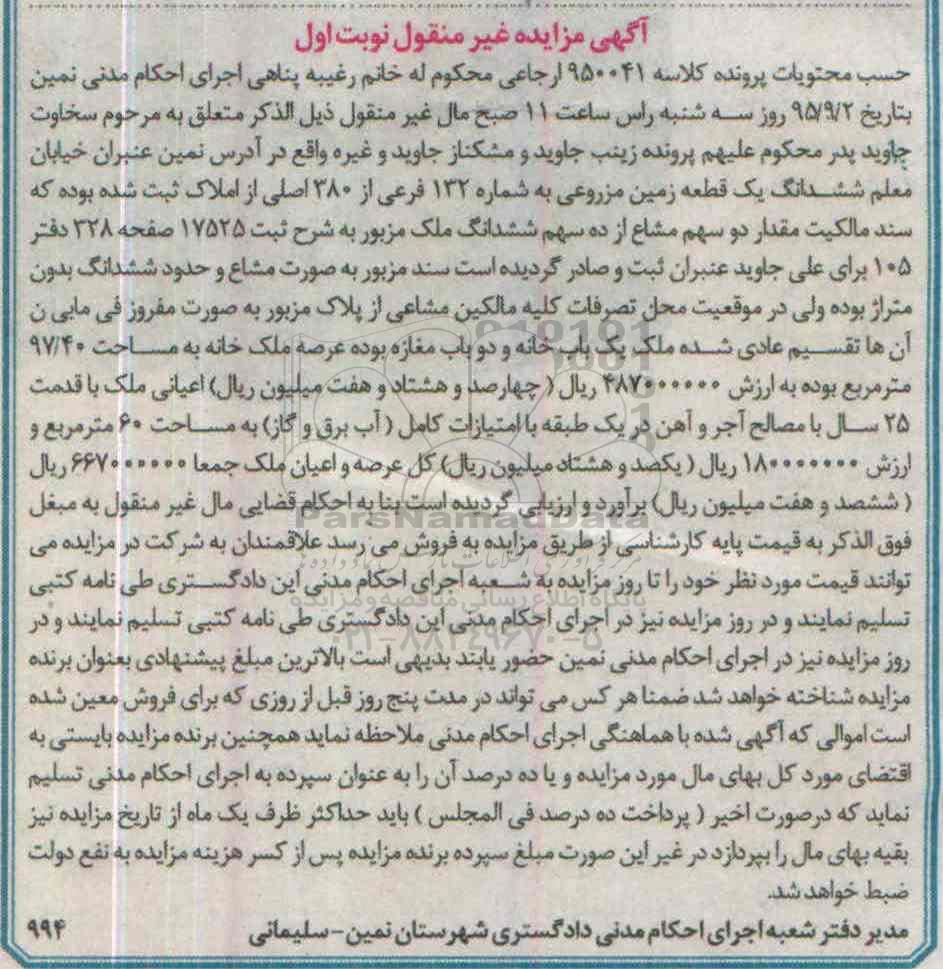 آگهی مزایده غیر منقول نوبت اول
حسب محتویات پرونده کلاسه ۹۵۰۰۴۱ ارجاعی محکوم له خانم رغیبه پناهی اجرای احکام مدنی نمین
بتاریخ ۹۵/۹/۲ روز سه شنبه راس ساعت ۱۱ صبح مال غیر منقول ذیل الذکر متعلق به مرحوم سخاوت
جاوید پدر محکوم علیهم پرونده زینب جاوید و مشکناز جاوید و غیره واقع در آدرس نمین عنبران خیابان
معلم ششدانگ یک قطعه زمین مزروعی به شماره ۱۳۲ فرعی از ۳۸۰ اصلی از املاک ثبت شده بوده که
سند مالکیت مقدار دو سهم مشاع از ده سهم ششدانگ ملک مزبور به شرح ثبت ۱۷۵۲۵ صفحه ۳۲۸ دفتر
۱۰۵ برای علی جاوید عنبران ثبت و صادر گردیده است سند مزبور به صورت مشاع و حدود ششدانگ بدون
متراژ بوده ولی در موقعیت محل تصرفات کلیه مالکین مشاعی از پلاک مزبور به صورت مفروز فی مابی ن
آن ها تقسیم عادی شده ملک یک باب خانه و دو باب مغازه بوده عرصه ملک خانه به مساحت ۹۷/۴۰
مترمربع بوده به ارزش ۴۸۷۰۰۰۰۰۰ ریال ( چهارصد و هشتاد و هفت میلیون ریال) اعیانی ملک با قدمت
۲۵ سال با مصالح آجر و آهن در یک طبقه با امتیازات کامل ( آب برق و گاز) به مساحت ۶۰ مترمربع و
ارزش ۱۸۰۰۰۰۰۰۰ ریال ( یکصد و هشتاد میلیون ریال) کل عرصه و اعیان ملک جمعا ۶۶۷۰۰۰۰۰۰ ریال
( ششصد و هفت میلیون ریال) برآورد و ارزیابی گردیده است بنا به احکام قضایی مال غیر منقول به مبغل
فوق الذکر به قیمت پایه کارشناسی از طریق مزایده به فروش می رسد علاقمندان به شرکت در مزایده می
توانند قیمت مورد نظر خود را تا روز مزایده به شعبه اجرای احکام مدنی این دادگستری طی نامه کتبی
تسلیم نمایند و در روز مزایده نیز در اجرای احکام مدنی این دادگستری طی نامه کتبی تسلیم نمایند و در
روز مزایده نیز در اجرای احکام مدنی نمین حضور یابند بدیهی است بالاترین مبلغ پیشنهادی بعنوان برنده
مزایده شناخته خواهد شد ضمنا هر کس می تواند در مدت پنج روز قبل از روزی که برای فروش معین شده
است اموالی که آگهی شده با هماهنگی اجرای احکام مدنی ملاحظه نماید همچنین برنده مزایده بایستی به
اقتضای مورد کل بهای مال مورد مزایده و یا ده درصد آن را به عنوان سپرده به اجرای احکام مدنی تسلیم
نماید که درصورت اخیر ( پرداخت ده درصد فی المجلس ) باید حداکثر ظرف یک ماه از تاریخ مزایده نیز
بقیه بهای مال را بپردازد در غیر این صورت مبلغ سپرده برنده مزایده پس از کسر هزینه مزایده به نفع دولت
ضبط خواهد شد.
مدیر دفتر شعبه اجرای احکام مدنی دادگستری شهرستان نمین-سلیمانی ۹۹۴
ParsNamadData
پایگاه اطلاع رسانی مناقصه و مزایده
۰۲۱-۸۸۳۴۹۶۷۰-۵